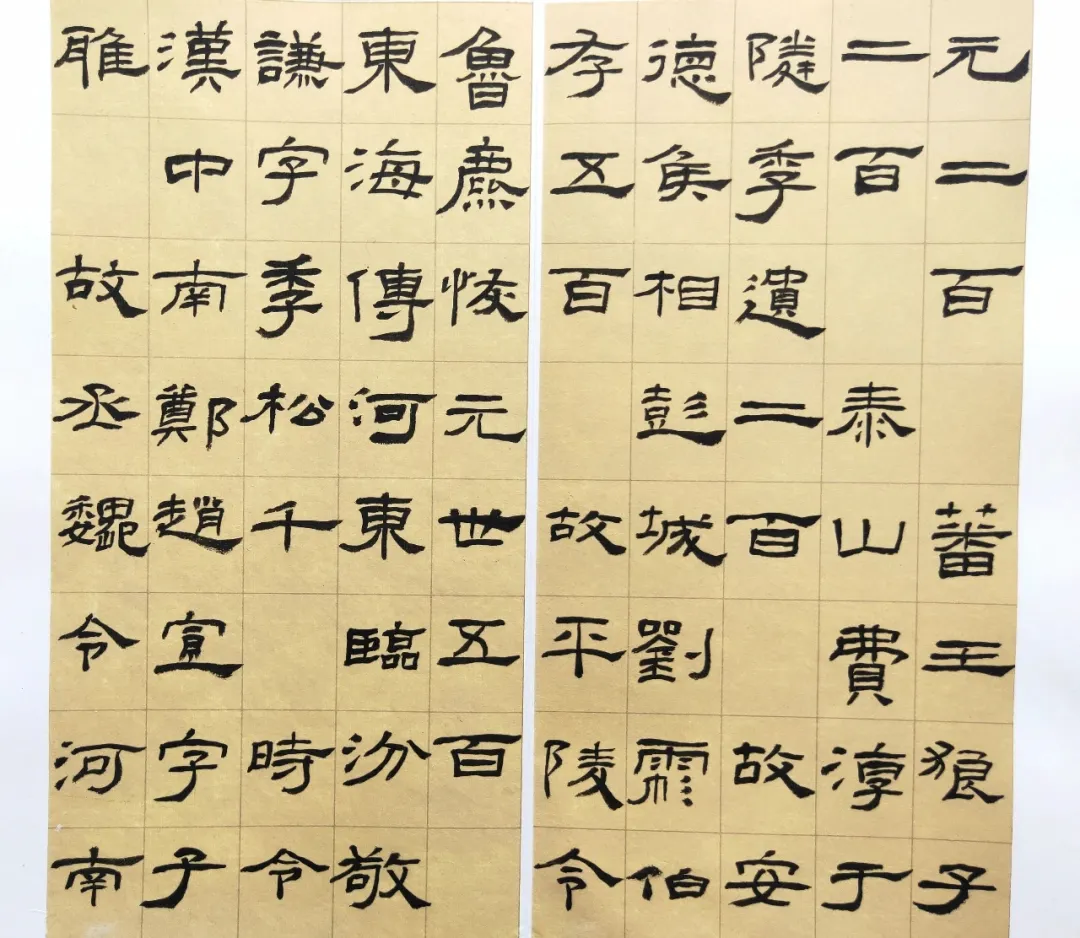 元二百蕃王狼子
二百泰山費淳于
隣季遺二百故安
德侯相彭城劉伯
存五百故平陵令
魯麃恢元世五百
東海傅河東臨汾敬
謙字季松千時令
漢中南鄭趙宣字子
雎故丞魏令河南